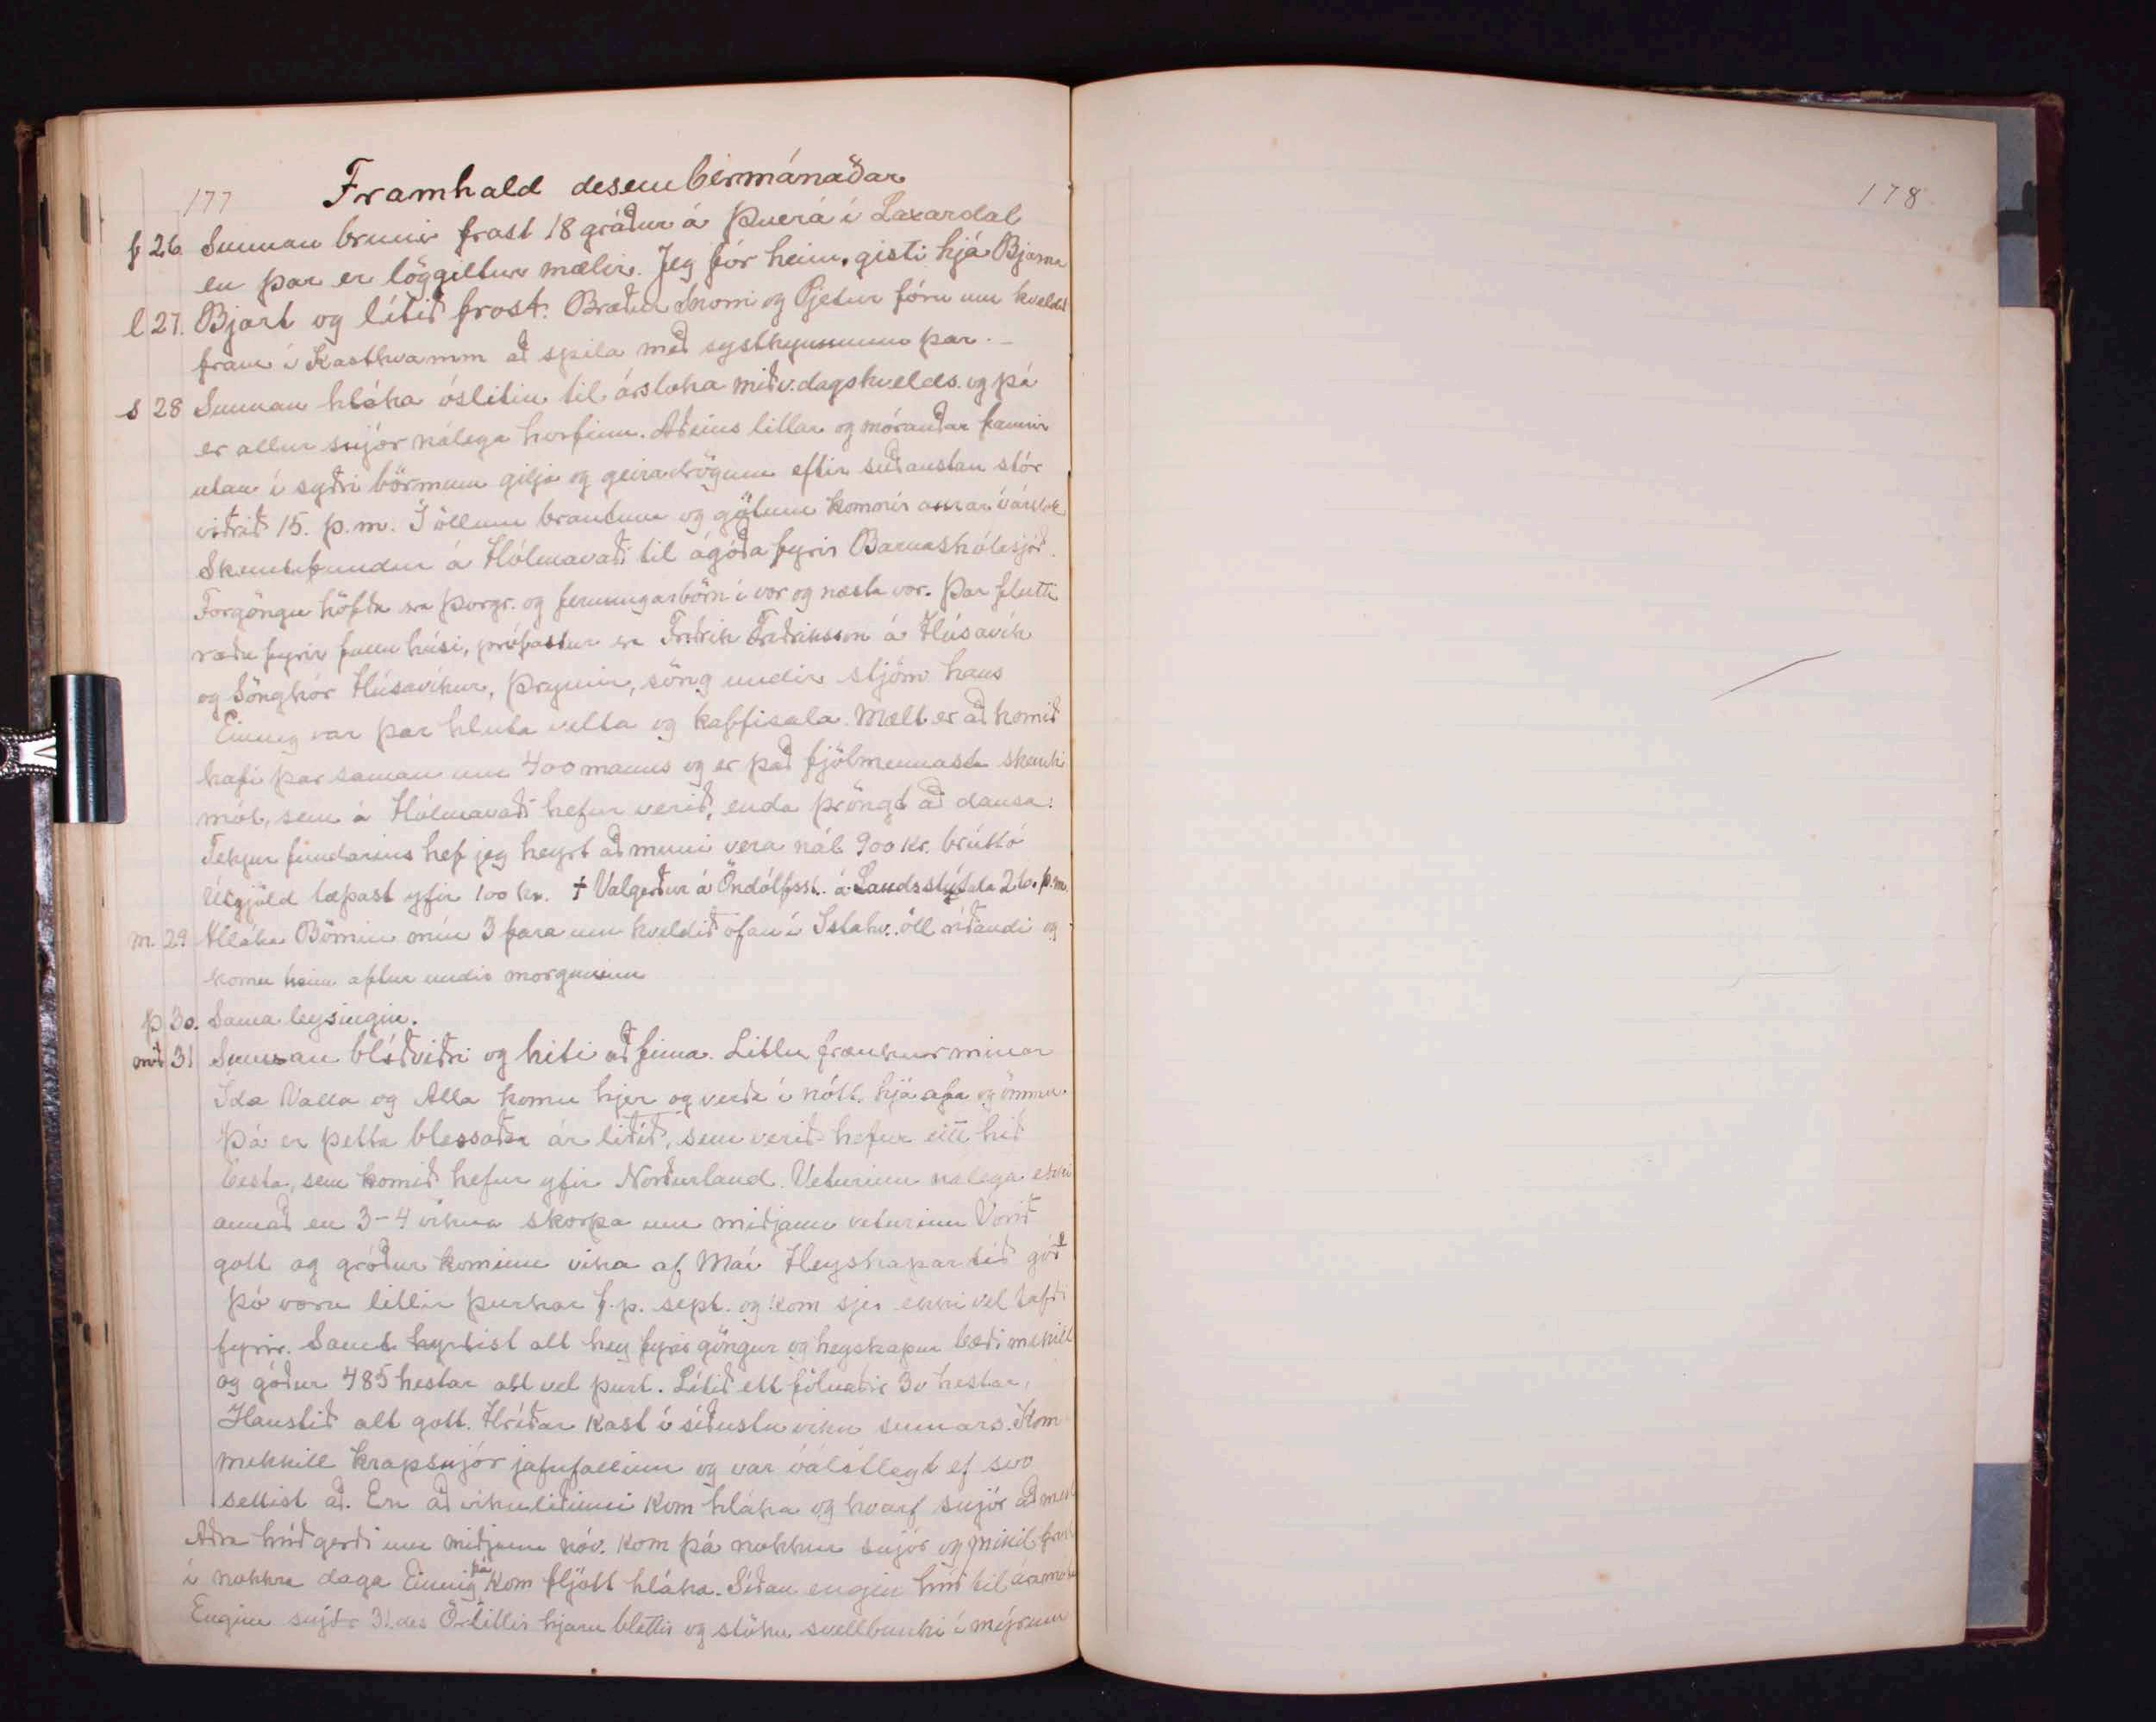 177 Framhald desembermánaðar
f 26. Sunnan bruni frost 18 gráður á Þverá í Laxardal
en þar er löggiltur mælir. Jeg fór heim. gisti hjá Bjarna
l 27. Bjart og lítið frost. Bræður Snorri og Pjetur fóru um kveldið
fram í Kasthvamm að spila með systkynunum þar.
s 28 Sunnan hláka óslitin til ársloka miðv.dagskvelds. og þá
er allur snjór nálega horfinn. Aðeins litlar og mórauðar fannir
utan í syðri börmum gilja og geiradrögum eftir suðaustan stór
viðrið 15. þ.m. Í öllum brautum og götum komnir aurar
Skemtifundur á Hólmavaði til ágóða fyrir Barnaskólasjóð.
Forgöngu höfðu sra Þorgr. og fermingarbörn í vor og næsta vor. Þar flutti
ræðu fyrir fullu húsi, prófastur sra Friðrik Friðriksson á Húsavík
og Söngkór Húsavíkur, Þrymur, söng undir stjórn hans
Einnig var þar hluta velta og kaffisala. Mælt er að komið
hafi þar saman um 400 manns og er það fjölmennasta skemti
mót, sem á Hólmavaði hefur verið, enda þröngt að dansa.
Tekjur fundarins hef jeg heyrt að muni vera nál 900 kr. brúttó
Útgjöld tæpast yfir 100 kr. † Valgerður á Öndólfsst. á Landsspítala 26. þ.m.
m. 29 Hláka Börnin mín 3 fara um kveldið ofan í Sstahv. öll ríðandi og
komu heim aftur undir morguninn
þ 30. Sama leysingin.
mið 31 Sunnan blíðviðri og hiti að finna. Litlu frænkur mínar
Ída Valla og Alla komu hjer og verða í nótt hjá afa og ömmu.
Þá er þetta blessaða ár liðið, sem verið hefur eitt hið
besta, sem komið hefur yfir Norðurland. Veturinn nálega ekki
annað en 3-4 vikna skorpa um miðjann veturinn Vorið
gott og gróður kominn vika af Maí Heyskapartíð góð
Þó voru litlir þurkar f.p. sept. og kom sjer ekki vel
fyrir. Samt hyrtist alt hey fyrir göngur og heyskapur bæði mikill
og góður 485 hestar alt vel þurt. Lítið eitt fölnaðir 30 hestar.
Haustið alt gott. Hríðar kast í síðustu viku sumars. Kom
mikkill krapsnjór jafnfallinn og var óálitlegt ef svo
settist að. En að viku liðinni kom hláka og hvarf snjór að mest
Aðra hríð gerði um miðjann nóv. kom þá nokkur snjór og mikil frost
í nokkra daga Einnig þá kom fljótt hláka. Síðan engin hríð til áramóta
Enginn snjór 31. des Örlitlir hjarn blettir og stöku svellbunki í mýrum
178